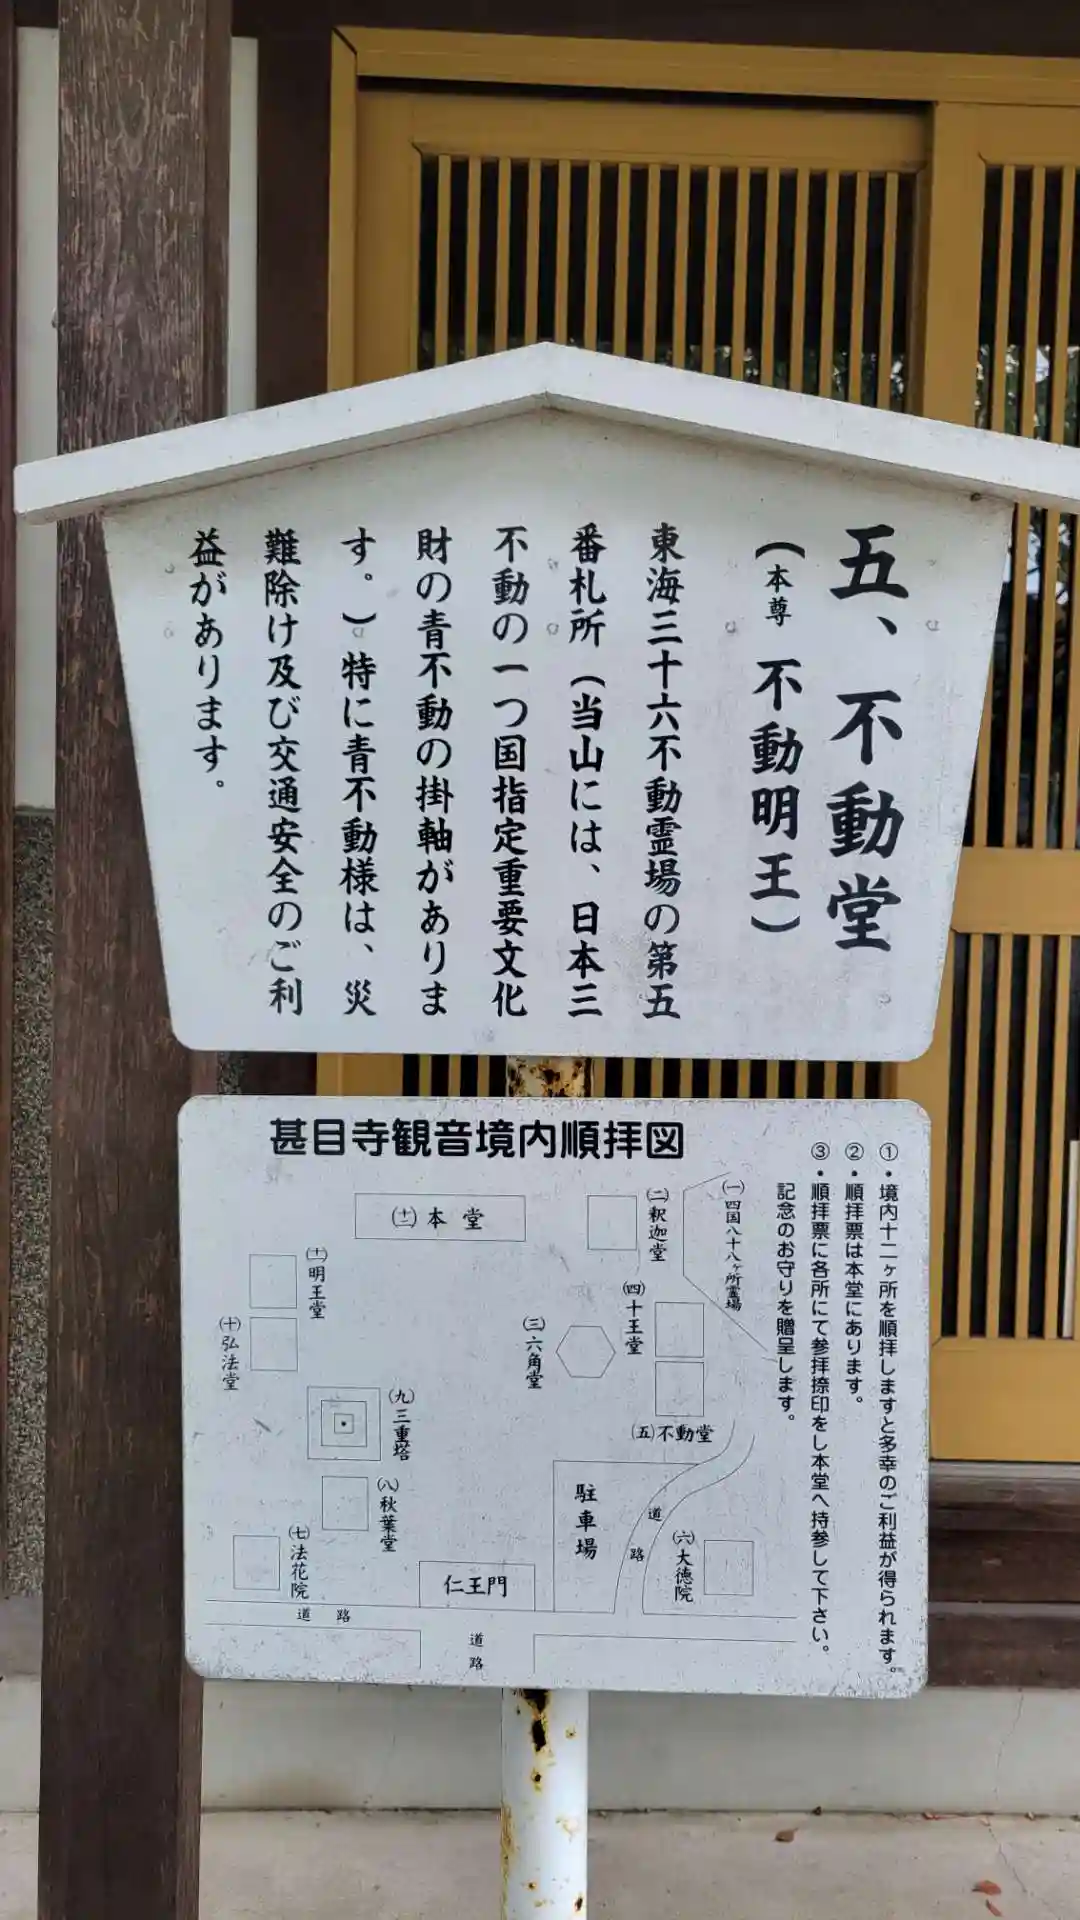 五、不動堂
（本尊 不動明王）
東海三十六不動霊場の第五
番札所（当山には、日本三
不動の一つ国指定重要文化
財の青不動の掛軸がありま
す。）特に青不動様は、災
難除け及び交通安全のご利
益があります。
甚目寺観音境内順拝図
①・境内十二ヶ所を順拝しますと多幸のご利益が得られます。
②・順拝票は本堂にあります。
③・順拝票に各所にて参拝捺印をし本堂へ持参して下さい。
記念のお守りを贈呈します。
(一)四国八十八ヶ所霊場
(二)釈迦堂
(十二)本堂
(十一)明王堂
(四)十王堂
(三)六角堂
(十)弘法堂
(九)三重塔
(五)不動堂
(八)秋葉堂
駐車場
道路
(六)大徳院
(七)法花院
仁王門
道路
道路